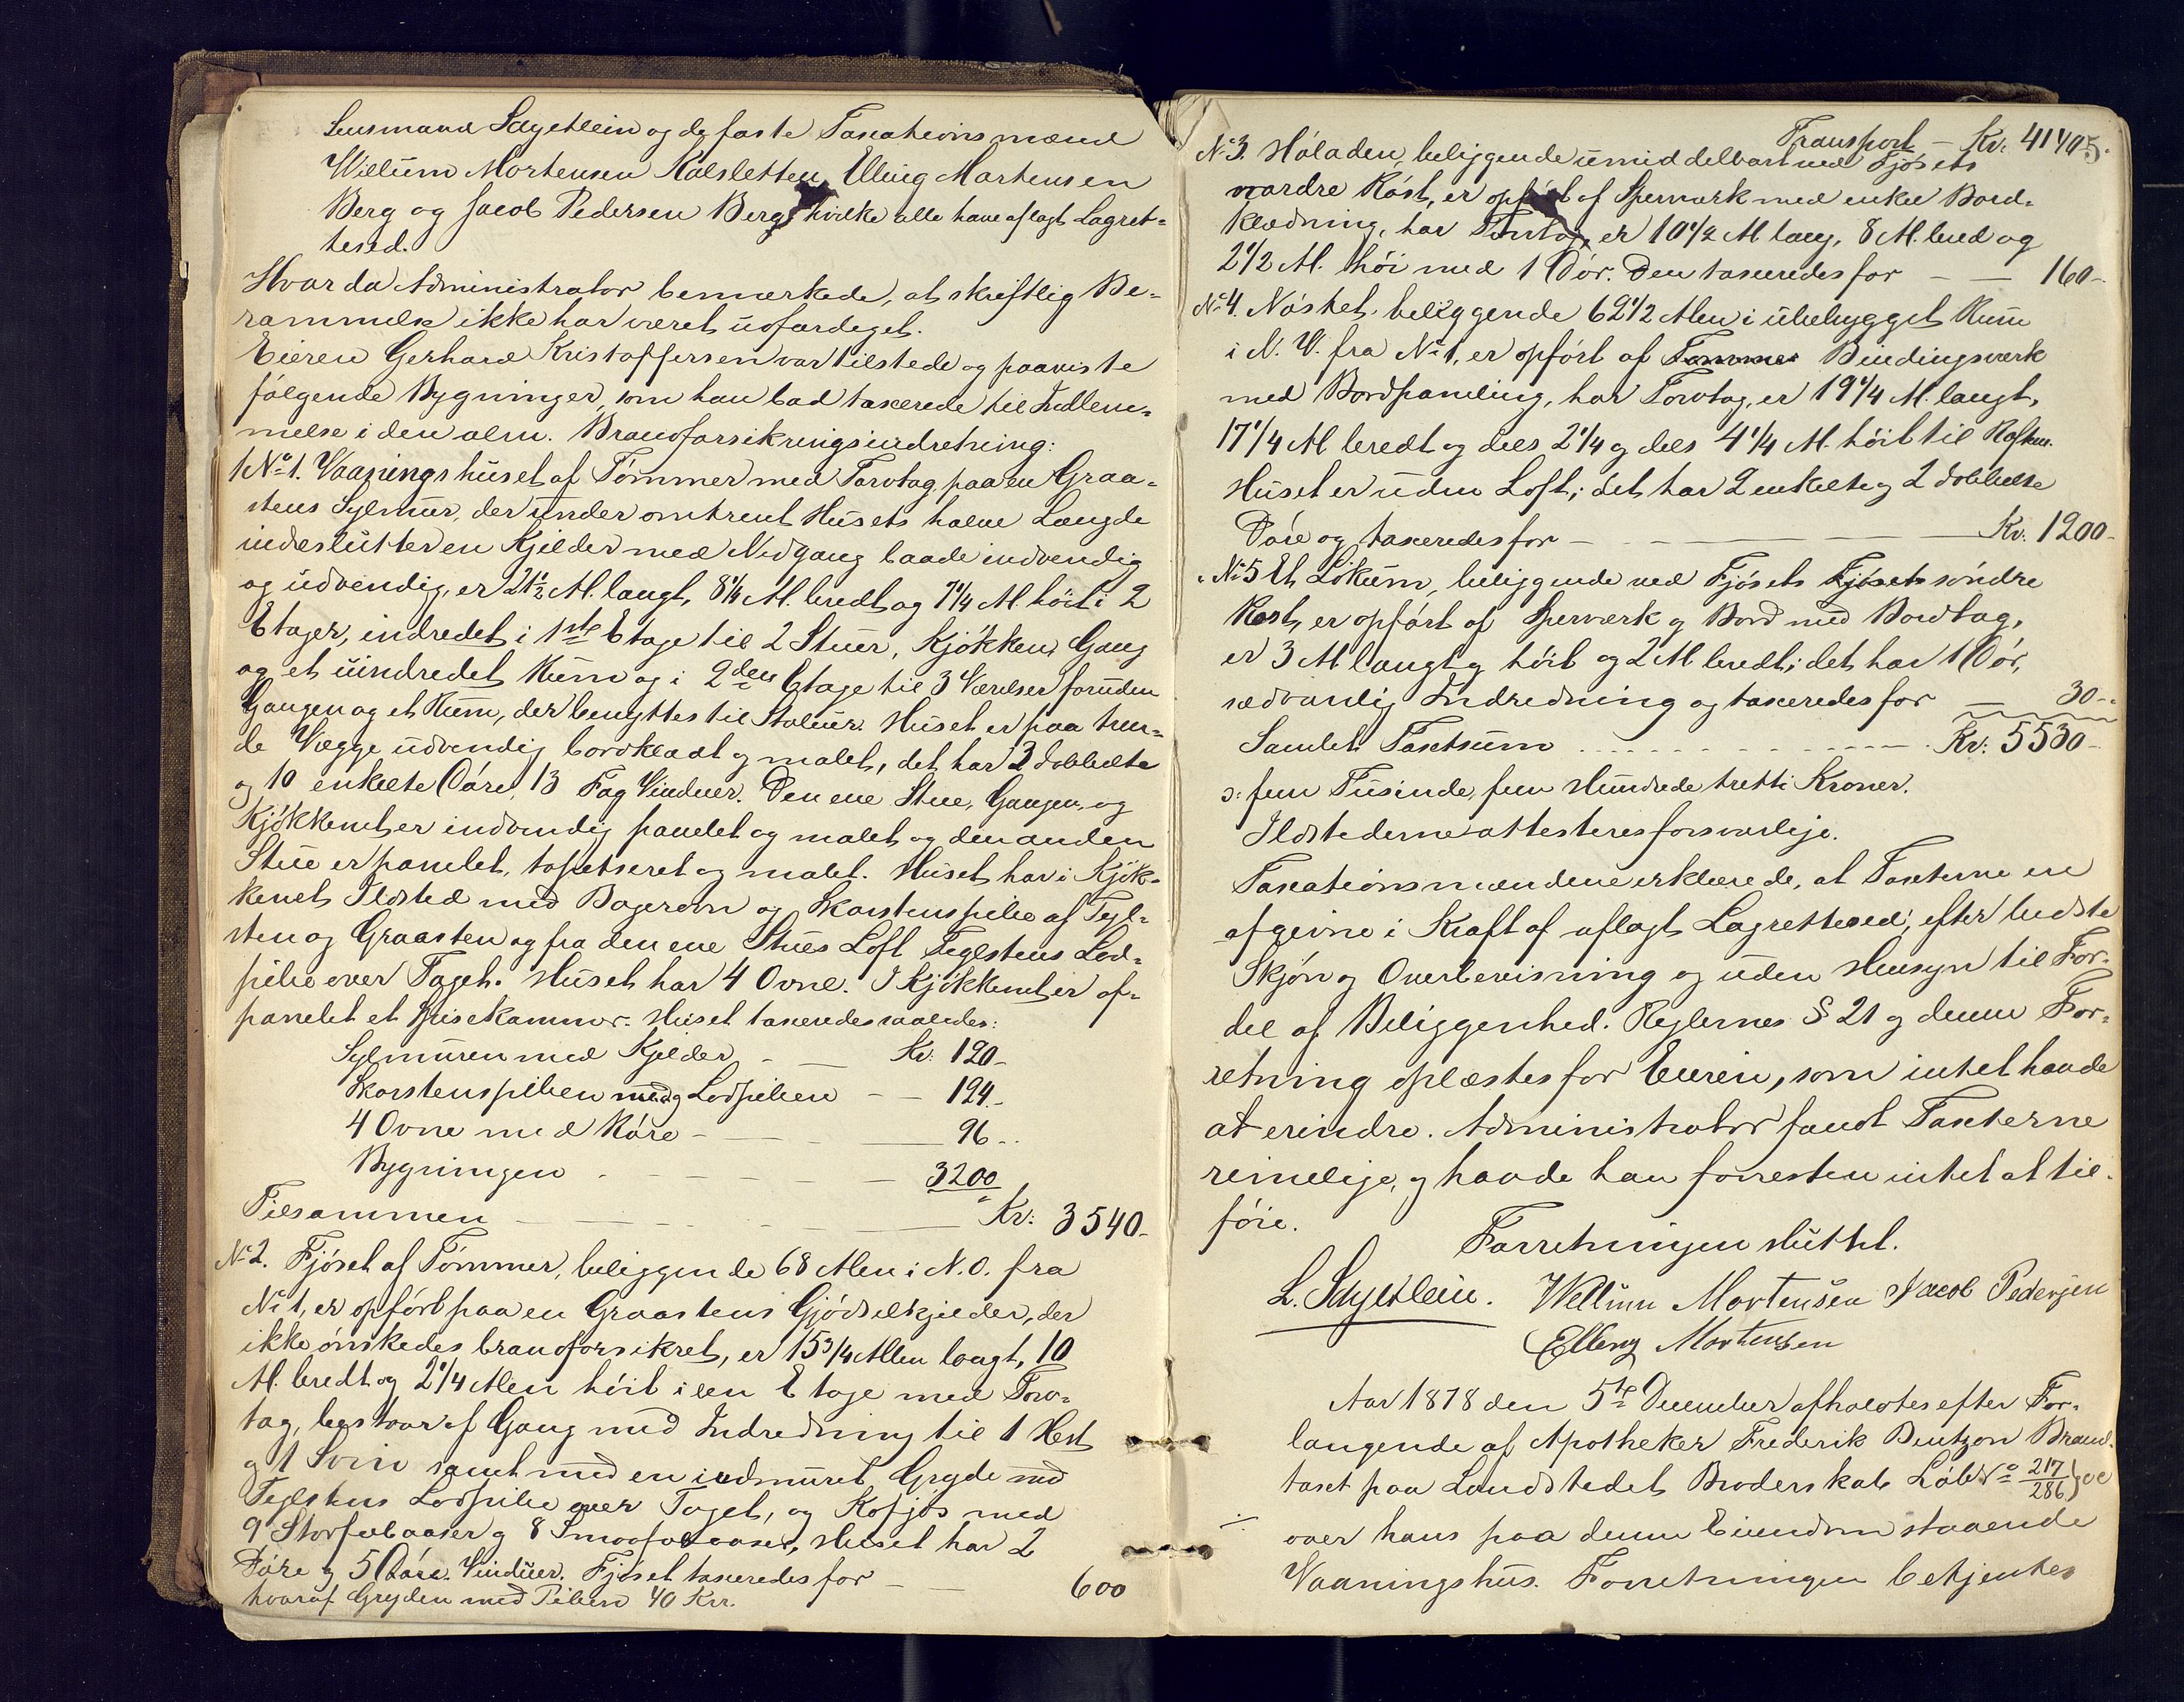 Lensmand Sagetlein og de faste Taxationsmænd
Willum Mortensen Kalsletten, Elling Mortensen
Berg og Jacob Pedersen Berg, hvilke alle have aflagt Lagret-
tesed.
Hvorda Administrator bemærkede, at skriftlig Be-
rammelse ikke har været udfærdiget.
Eieren Gerhard Kristoffersen var tilstede og paaviste
følgende Bygninger, som han bad taxerede til Indlem-
melse i den alm. Brandforsikringsindretning:
No 1. Vaaningshuset af Tømmer med Torvtag paa en Graa-
stens Sylmur, der under omtrent Husets halve Længde
indeslutter en Kjelder med Nedgang baade indvendig
og udvendig, er 21 1/2 Al. langt, 8 1/4 Al. bredt og 7 1/4 Al. høit i 2
Etager, indredet i 1ste Etage til 2 Stuer, Kjøkken, Gang
og et uindredet Rum og i 2den Etage til 3 Værelser foruden
Gangen og et Rum, der benyttes til Stabur. Huset er paa tven-
de Vægge udvendig bordklædt og malet, det har 2 dobbelte
og 10 enkelte Døre, 13 Fag Vinduer. Den ene Stue, Gangen og
Kjøkkenet er indvendig panelet og malet og den anden
Stue er panelet, tapetseret og malet. Huset har i Kjøk-
kenet Ildsted med Bagerovn og Skorstenspibe af Tegl-
sten og Graasten og fra den ene Stues Loft Teglstens Lod-
pibe over Taget. Huset har 4 Ovne. I Kjøkkenet er af-
panelet et Spisekammer. Huset taxeredes saaledes:
Sylmuren med Kjelder - — Kr: 120-
Skorstenspiben med og Lodpiben - — 124.-
4 Ovne med Røre - — 96-
Bygningen - - - — 3200
Tilsammen — — — Kr: 3540-
No 2. Fjøset af Tømmer, beliggende 68 Alen i N.O. fra
No 1, er opført paa en Graastens Gjødselkjelder, der
ikke ønskedes brandforsikret, er 15 3/4 Alen langt, 10
Al. bredt og 2 1/4 Alen høit i een Etage med Torv-
tag, bestaar af Gang med Indredning til 1 Hest
og 1 Svin samt med en indmuret Gryde med
Teglstens Lodpibe over Taget, og Kofjøs med
9 Storfæbaaser og 8 Smaafæbaaser, Huset har 2
Døre og 5 Vinduer. Fjøset taxeredes for — — 600
hvoraf Gryden med Piben 40 Kr.
Transport — Kr. 4140
5.
No 3. Høladen, beliggende umiddelbart ved Fjøsets
nordre Røst, er opført af Sperværk med enkel Bord-
klædning, har Torvtag, er 10 1/2 Al lang, 8 Al. bred og
2 1/2 Al. høi med 1 Dør. Den taxeredes for — — 160-
No 4. Nøstet, beliggende 62 1/2 Alen i ubebygget Rum
i N. V. fra No 1, er opført af Tømmer Bindingsværk
med Bordpaneling, har Torvtag, er 19 1/4 Al. langt,
17 1/4 Al bredt og dels 2 1/4 og dels 4 1/4 Al. høit til Raften.
Huset er uden Loft; det har 2 enkelte og 2 dobbelte
Døre og taxeredes for — — — Kr. 1200-
No 5 Et Lokum, beliggende ved Fjøsets Fjøsets søndre
Røst, er opført af Sperværk og Bord med Bordtag,
er 3 Al langt og høit og 2 Al bredt; det har 1 Dør,
sædvanlig Indredning og taxeredes for — 30-
Samlet Taxtsum . . . . . . — Kr: 5530-
ɔ: fem Tusinde, fem Hundrede tretti Kroner.
Ildstederne attesteres forsvarlige.
Taxationsmændene erklærede, at Taxterne ere
afgivne i Kraft af aflagt Lagrettesed, efter bedste
Skjøn og Overbevisning og uden Hensyn til For-
del af Beliggenhed. Reglernes § 21 og denne For-
retning oplæstes for Eieren, som intet havde
at erindre. Administrator fandt Taxterne
rimelige, og havde han forresten intet at til-
føie.
Forretningen sluttet.
L. Sagetlein. Wellum Mortensen Jacob Pedersen
Elling Mortensen
Aar 1878 den 5te December afholdtes efter For-
langende af Apotheker Frederik Bentzon Brand-
taxt paa Landstedet Broderskab Løbe No 217/286
over hans paa denne Eiendom staaende
Vaaningshus. Forretningen betjentes